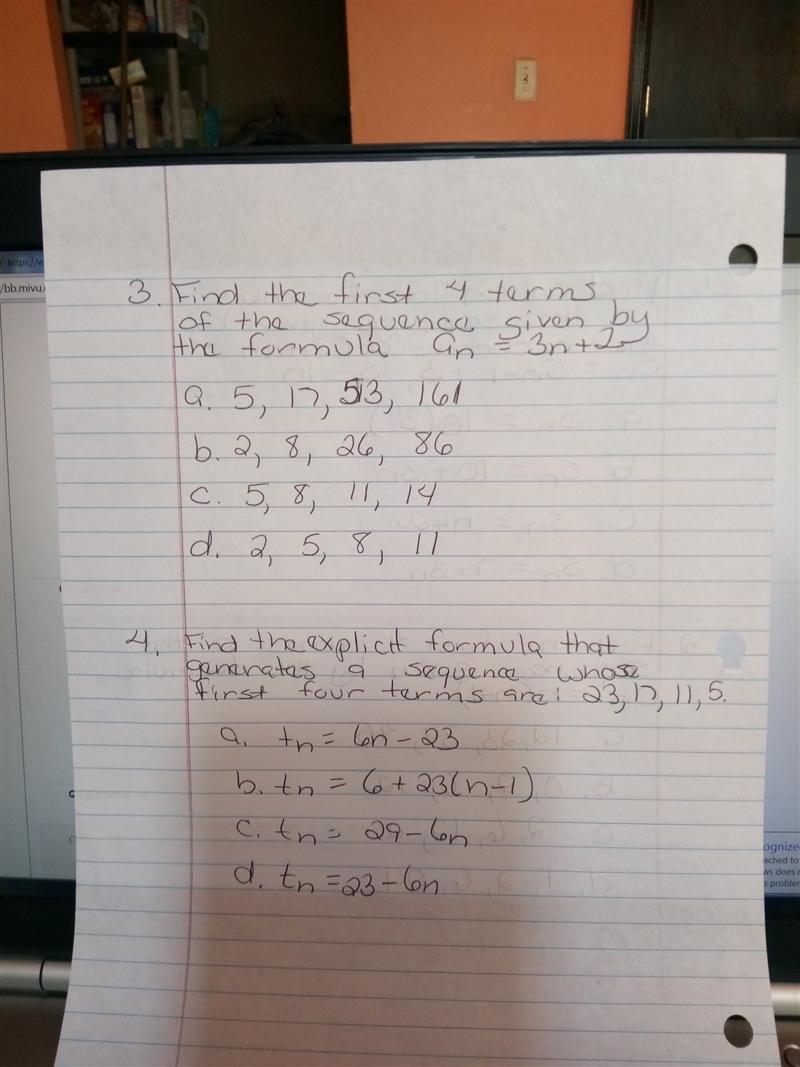 https://v
/bb.mivu.
3. Find the first 4 terms
of the sequence given by
the formula an = 3n+2
a. 5, 17, 53, 161
b. 2, 8, 26, 86
c. 5, 8, 11, 14
d. 2, 5, 8, 11
4. Find the explicit formula that
generates a sequence whose
first four terms are: 23, 17, 11, 5.
a. tn = 6n - 23
b. tn = 6 + 23(n-1)
c. tn = 29 - 6n
d. tn = 23 - 6n
ognized
ached to
ws does n
s problem